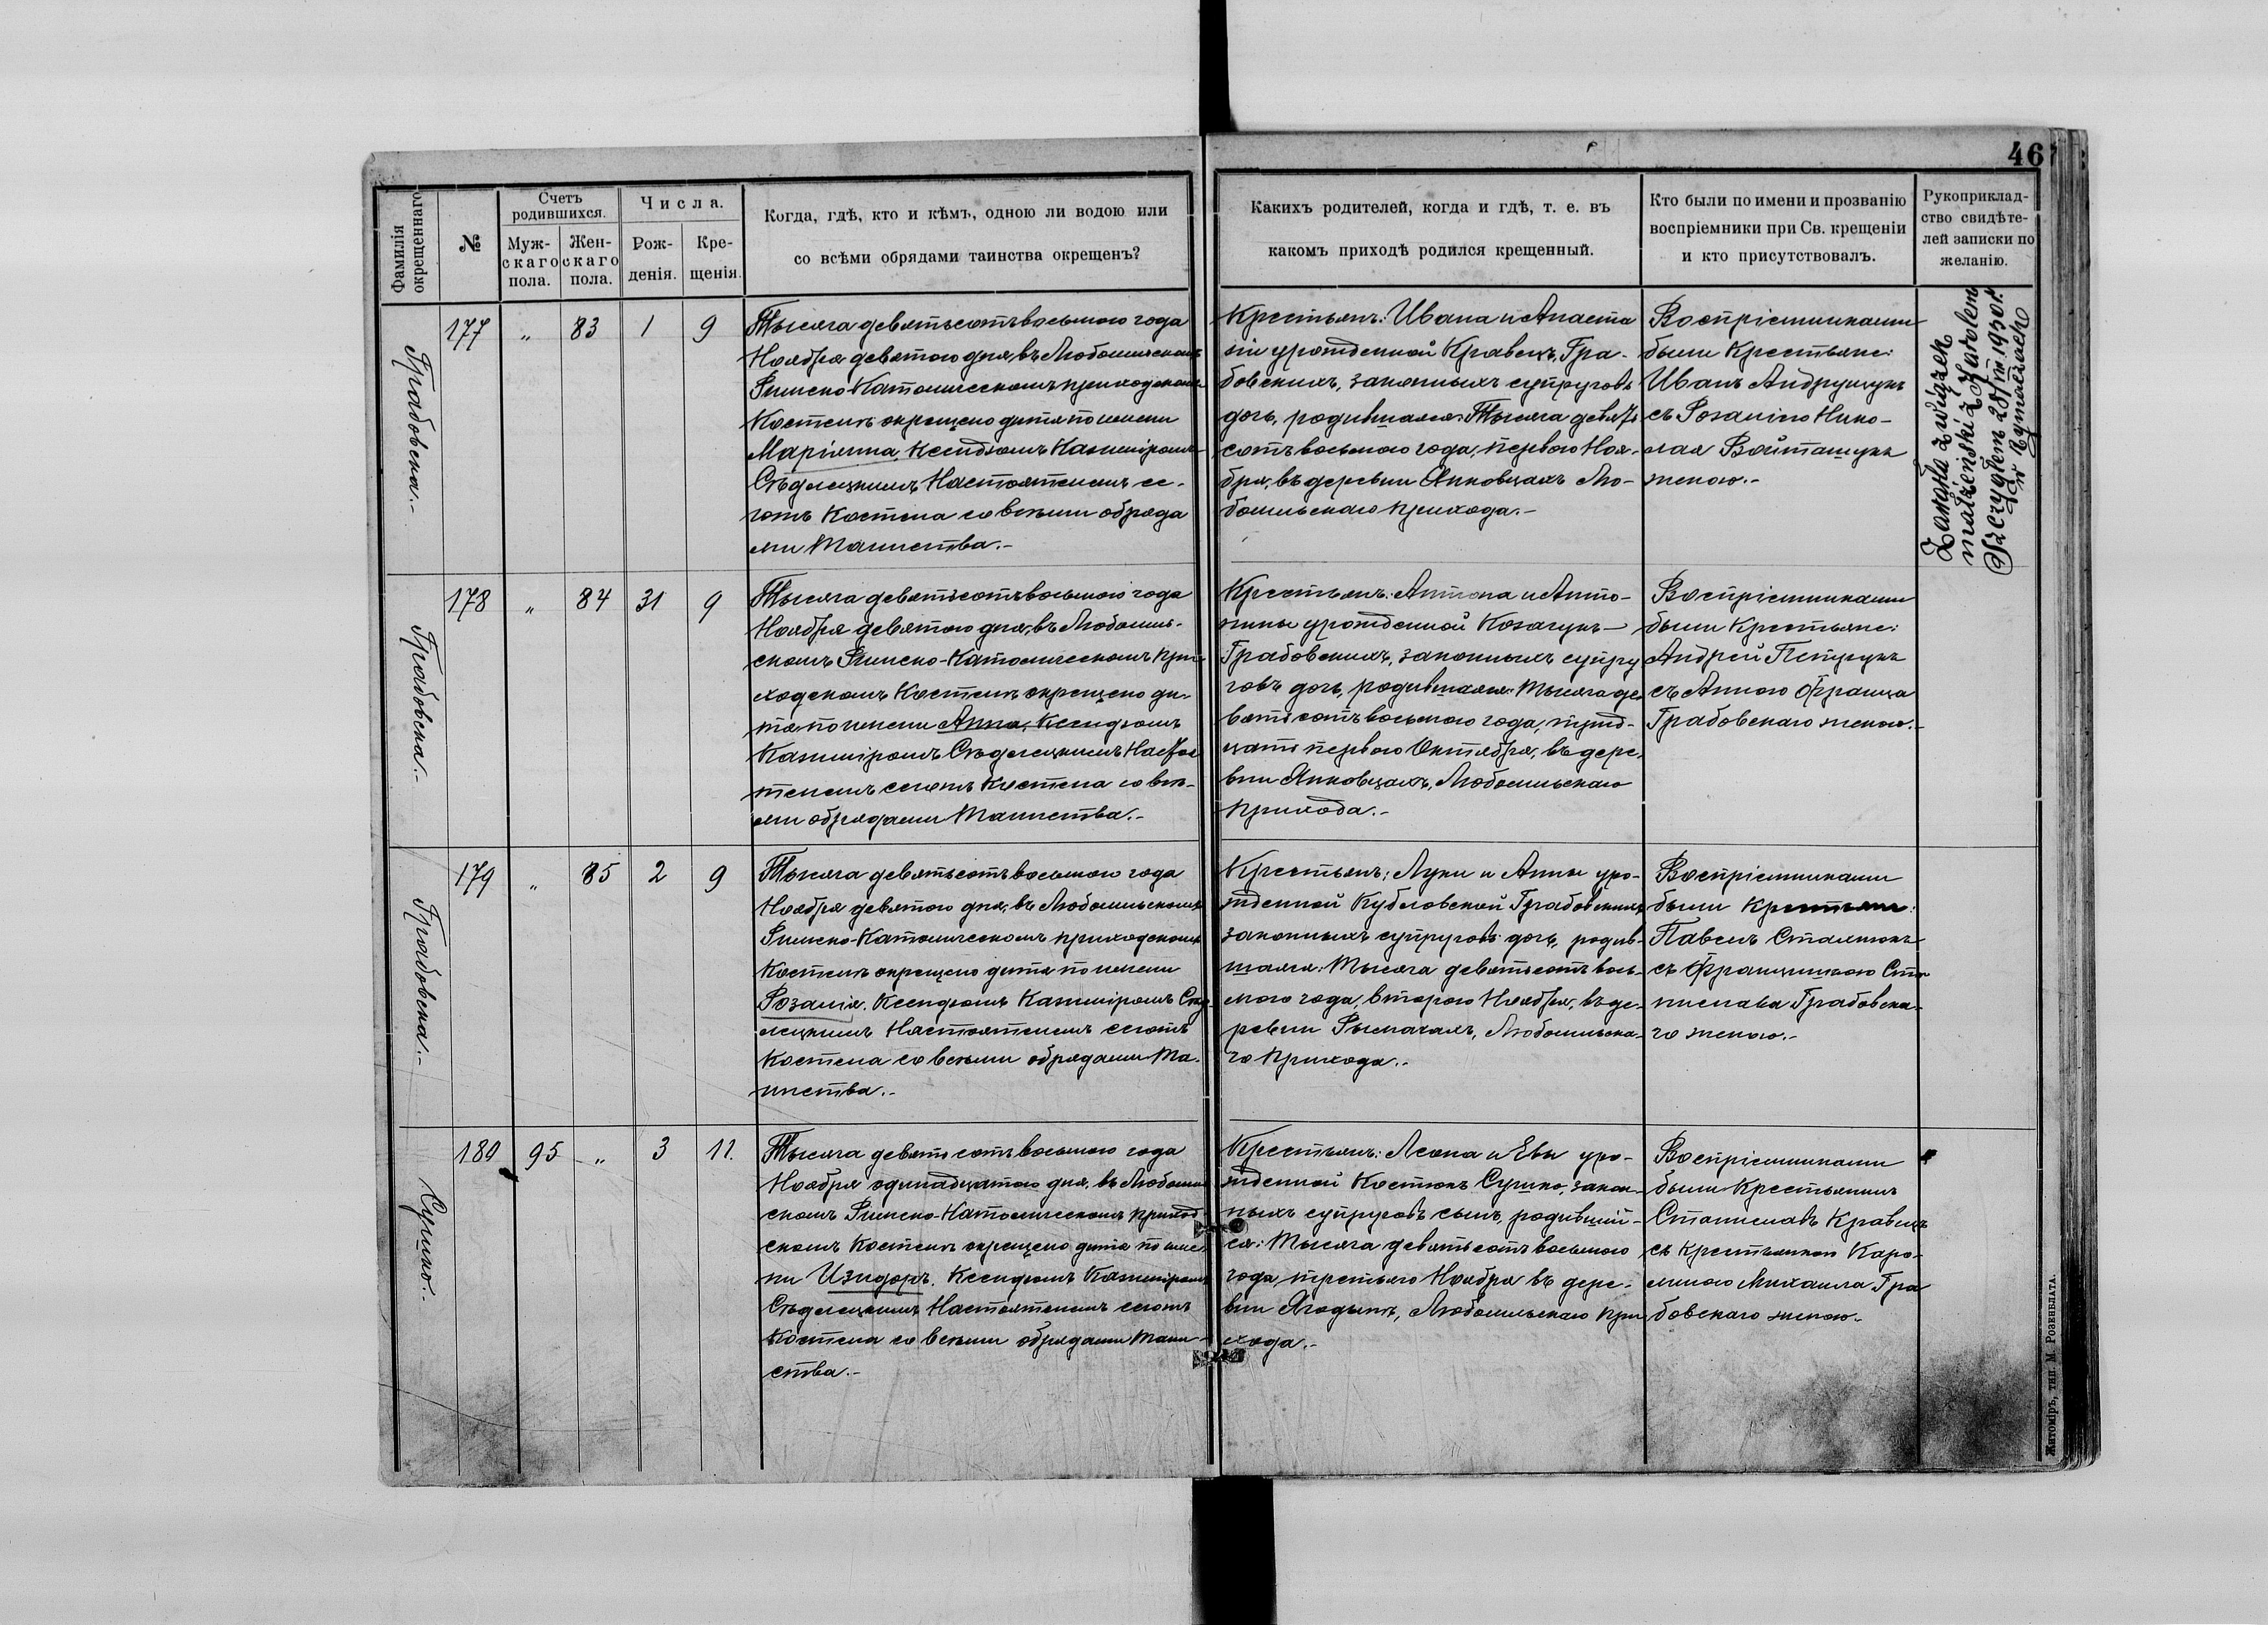 46
Фамилія
окрещеннаго
№
Счетъ
родившихся.
Муж-
скаго
пола.
Жен-
скаго
пола.
Числа.
Рож-
денія.
Кре-
щенія.
Когда, гдѣ, кто и кѣмъ, одною ли водою или
со всѣми обрядами таинства окрещенъ?
Какихъ родителей, когда и гдѣ, т. е. въ
какомъ приходѣ родился крещенный.
Кто были по имени и прозванію
воспріемники при Св. крещеніи
и кто присутствовалъ.
Рукоприклад-
ство свидѣте-
лей записки по
желанію.
Грабовска.-
177 „ 83 1 9
Тысяча девятьсотъ восьмого года
Ноября девятого дня, въ Любомльскомъ
Римско-Католическомъ приходскомъ
Костелѣ окрещено дитя по имени
Маріянна, Ксендзомъ Казиміромъ
Сѣдлецкимъ Настоятелемъ се-
готъ Костела со всѣми обряда
ми Таинства.-
Крестьянъ: Ивана и Анаста
зіи урожденной Кравецъ, Гра-
бовскихъ, законныхъ супруговъ
дочь, родившаяся: Тысяча девять
сотъ восьмого года, перваго Ноя-
бря, въ деревни Янковцахъ Лю-
бомльскаго прихода.-
Воспріемниками
были Крестьяне:
Иванъ Андрущукъ
съ Розаліею Нико-
лая Войташукъ
женою.-
Zawarła związek
małżeński z Karolem
28/VIII 1930 r.
Грабовска.-
178 „ 84 31 9
Тысяча девятьсотъ восьмого года
Ноября девятого дня, въ Любомль-
скомъ Римско-Католическомъ при-
ходскомъ Костелѣ окрещено ди-
тя по имени Анна, Ксендзомъ
Казиміромъ Сѣдлецкимъ Настоя
телемъ сеготъ Костела со всѣ-
ми обрядами Таинства.-
Крестьянъ: Антона и Анто-
нины урожденной Козачукъ
Грабовскихъ, законныхъ супру
говъ дочь, родившаяся: Тысяча де
вятьсотъ восьмого года, трид-
цать перваго Октября, въ дере-
вни Янковцахъ, Любомльскаго
прихода.-
Воспріемниками
были Крестьяне:
Андрей
съ Анною Франца
Грабовскаго женою.-
Грабовска.-
179 „ 85 2 9
Тысяча девятьсотъ восьмого года
Ноября девятого дня, въ Любомльскомъ
Римско-Католическомъ приходскомъ
Костелѣ окрещено дитя по имени
Розалія. Ксендзомъ Казиміромъ Сѣд-
лецкимъ Настоятелемъ сеготъ
Костела со всѣми обрядами Та-
инства.-
Крестьянъ: Луки и Анны уро-
жденной Кубловской Грабовскихъ
законныхъ супруговъ дочь, родив-
шаяся: Тысяча девятьсотъ вось-
мого года, второго Ноября, въ де-
ревни Рымачахъ, Любомльска-
го прихода.-
Воспріемниками
были Крестьяне:
Павелъ
съ Францишкою Ста
нислава Грабовска-
го женою.-
Сушко.-
180 95 „ 3 11.
Тысяча девятьсотъ восьмого года
Ноября одинадцатого дня, въ Любомль
скомъ Римско-Католическомъ приход
скомъ Костелѣ окрещено дитя по име-
ни Изидоръ. Ксендзомъ Казиміромъ
Сѣдлецкимъ Настоятелемъ сеготъ
Костела со всѣми обрядами Таин-
ства.-
Крестьянъ: Леона и Евы уро-
жденной Костюкъ Сушко, закон-
ныхъ супруговъ сынъ, родивший-
ся: Тысяча девятьсотъ восьмого
года, третьяго Ноября въ дере-
вни Ягодынѣ, Любомльскаго при
хода.-
Воспріемниками
были Крестьянинъ
Станиславъ Кравецъ
съ крестьянкою Каро-
линою Михаила Гра
бовскаго женою.-
Житоміръ, тип. М. Розенблата.